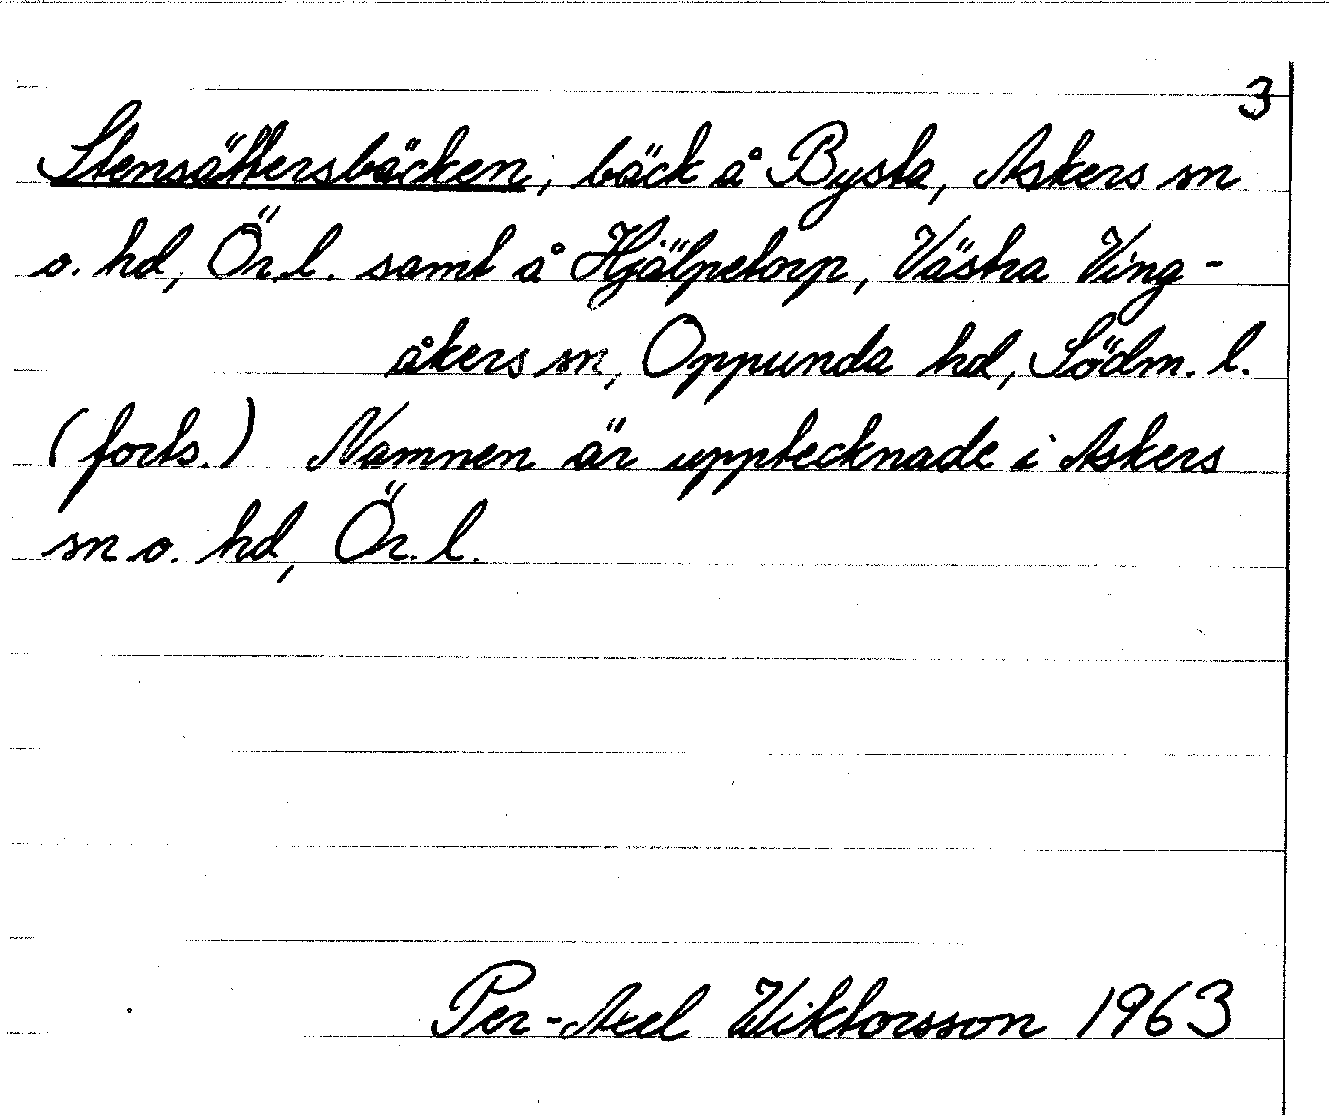 3
Stensättersbäcken, bäck å Bysta, Askers sn
o. hd, Ör. l. samt å Hjälpetorp, Västra Ving-
åkers sn, Oppunda hd, Södm. l.
(forts.) Namnen är upptecknade i Askers
sn o. hd, Ör. l.
Per-Axel Wiktorsson 1963